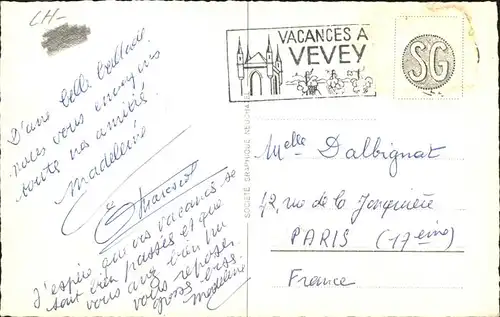 CH-
D'une belle ballade
nous vous envoyons
toute nos amitié.
Madeleine
J'espère que vos vacances se
sont bien passées et que
vous avez bien pu
vous reposer
gross biss
Madeleine
VACANCES A
VEVEY
SG
SOCIÉTÉ GRAPHIQUE NEUCHATEL
Melle Dalbignat
42, rue de la Jonquière
PARIS (17ème)
France